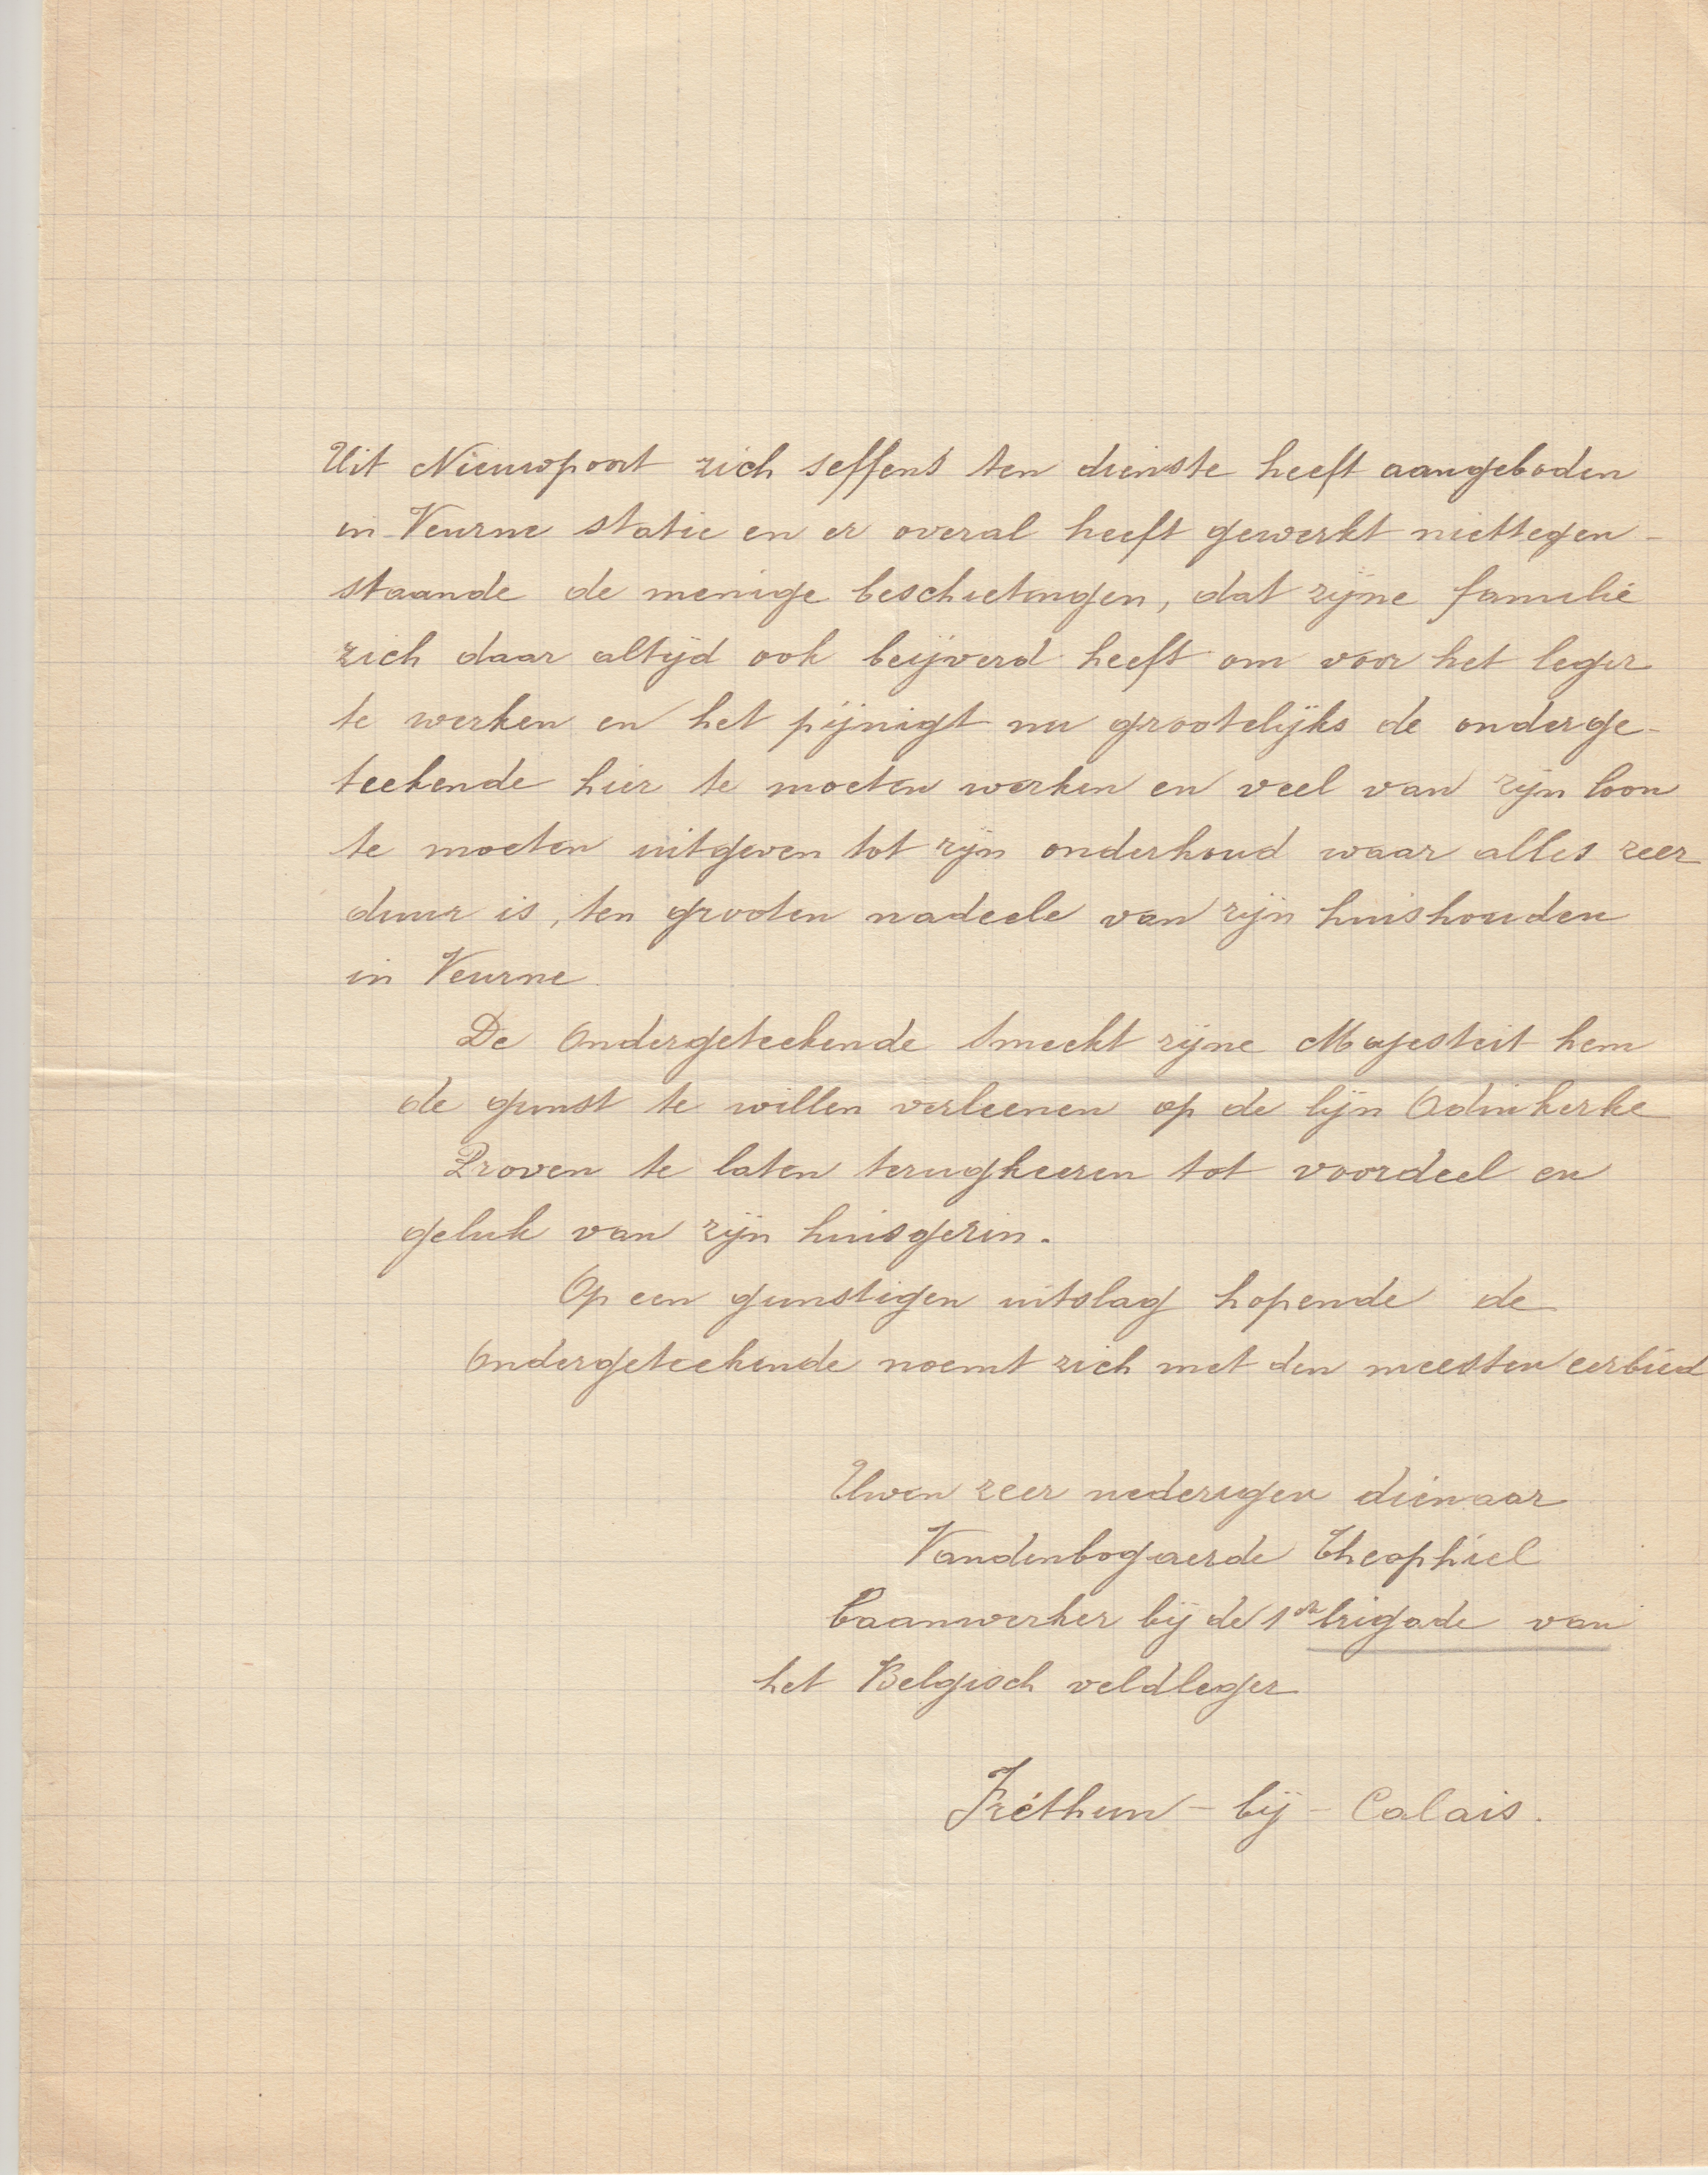 Uit Nieuwpoort zich seffens ten dienste heeft aangeboden
in Veurne statie en er overal heeft gewerkt niettegen-
staande de menige beschietingen, dat zijne familie
zich daar altijd ook beijverd heeft om voor het leger
te werken en het pijnigt nu grootelijks de onderge-
teekende hier te moeten werken en veel van zijn loon
te moeten uitgeven tot zijn onderhoud waar alles zeer
duur is, ten grooten nadeele van zijn huishouden
in Veurne
De Ondergeteekende smeekt zijne Majesteit hem
de gunst te willen verleenen op de lijn Adinkerke
Proven te laten terugkeeren tot voordeel en
geluk van zijn huisgezin.
Op een gunstigen uitslag hopende de
Ondergeteekende noemt zich met den meesten eerbied
Uwen zeer nederigen dienaar
Vandenbogaerde Theophiel
baanwerker bij de 1ste brigade van
het Belgisch veldleger
Fréthun - bij - Calais.